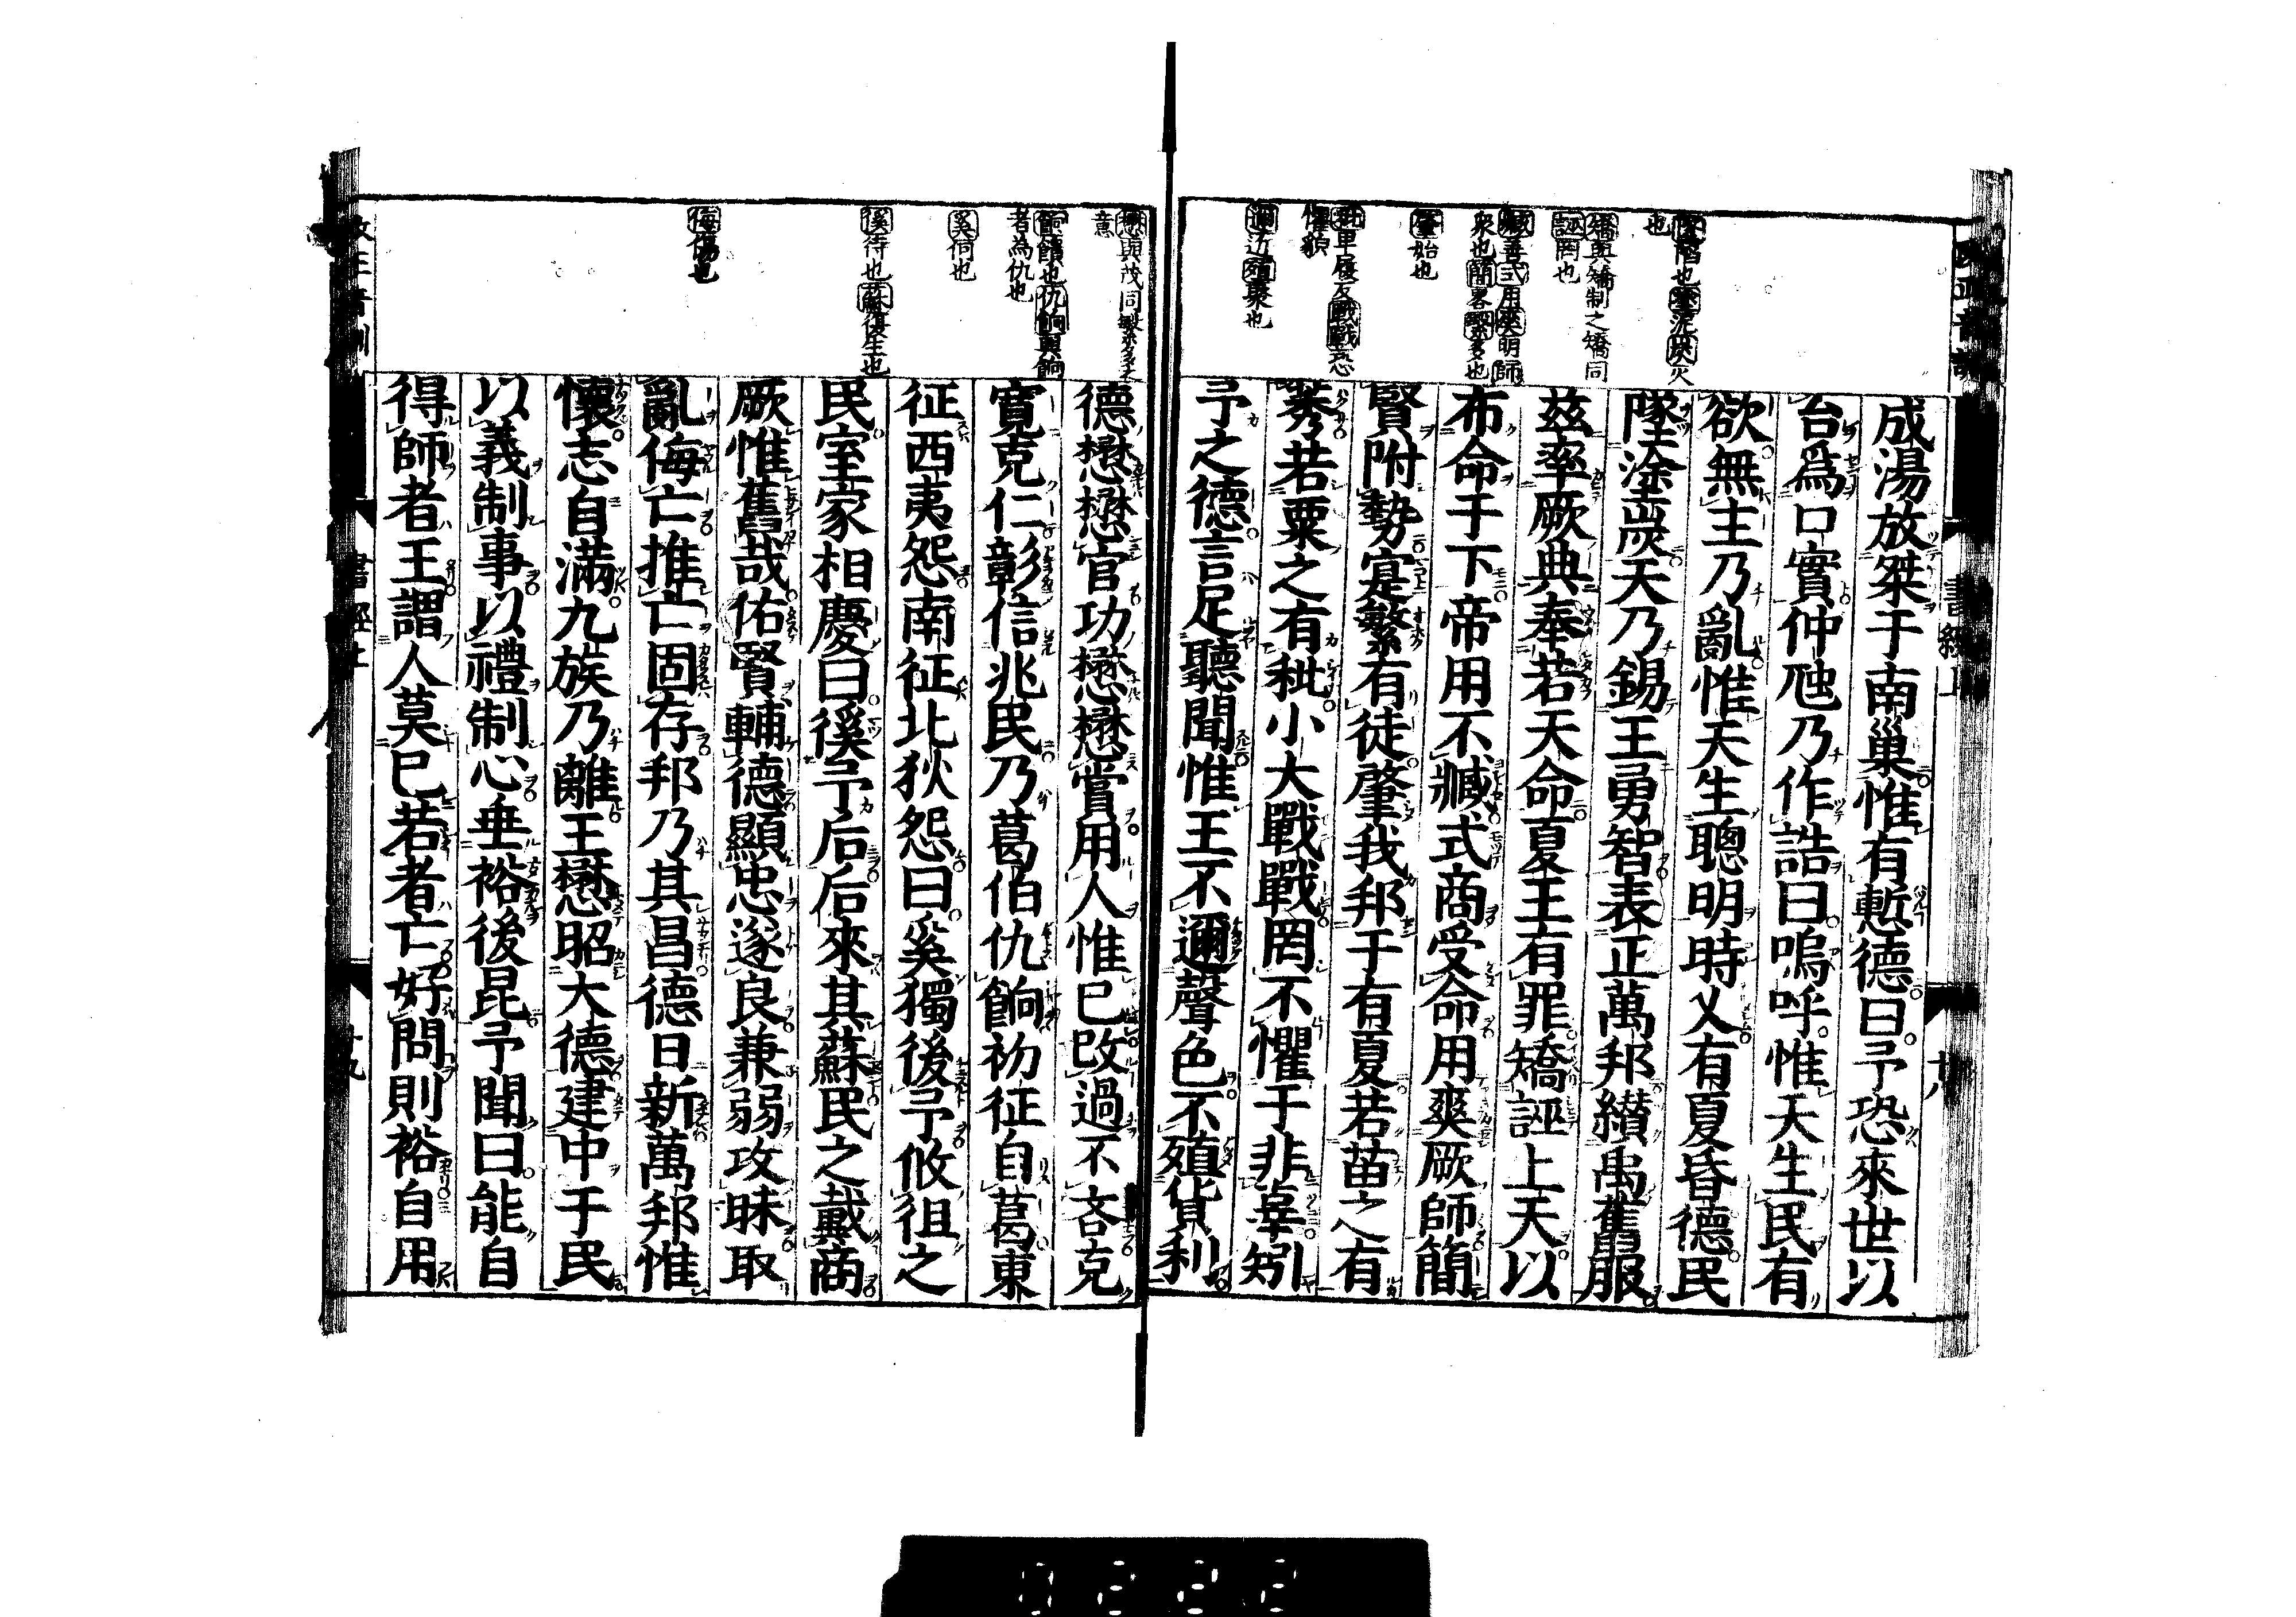 成湯放桀于南巢惟有慙德曰予恐來世以
台爲口實仲虺乃作誥曰嗚呼惟天生民有
欲無主乃亂惟天生聰明時乂有夏昏德民
墜塗炭天乃錫王勇智表正萬邦纉禹舊服
兹率厥典奉若天命夏王有罪矯誣上天以
布命于下帝用不臧式商受命用爽厥師簡
賢附勢寔繁有徒肇我邦于有夏若苗之有
莠若粟之有秕小大戰戰罔不懼于非辜矧
予之德言足聽聞惟王不邇聲色不殖貨利
德懋懋官功懋懋賞用人惟已改過不吝克
寬克仁彰信兆民乃葛伯仇餉初征自葛東
征西夷怨南征北狄怨曰奚獨後予攸徂之
民室家相慶曰徯予后后來其蘇民之戴商
厥惟舊哉佑賢輔德顯忠遂良兼弱攻昧取
亂侮亡推亡固存邦乃其昌德日新萬邦惟
懷志自滿九族乃離王懋昭大德建中于民
以義制事以禮制心垂裕後昆予聞曰能自
得師者王謂人莫已若者亡好問則裕自用
墜陷也塗泥炭火
也
矯與矯制之矯同
誣罔也
臧善式用爽明師
衆也簡畧繁多也
肇始也
懼貌
邇近殖聚也
懋與茂同繁多之
意
餉饋也仇餉與餉
者為仇也
奚何也
徯待也蘇復生也
侮傷也
書經上
十八
書經上
十九